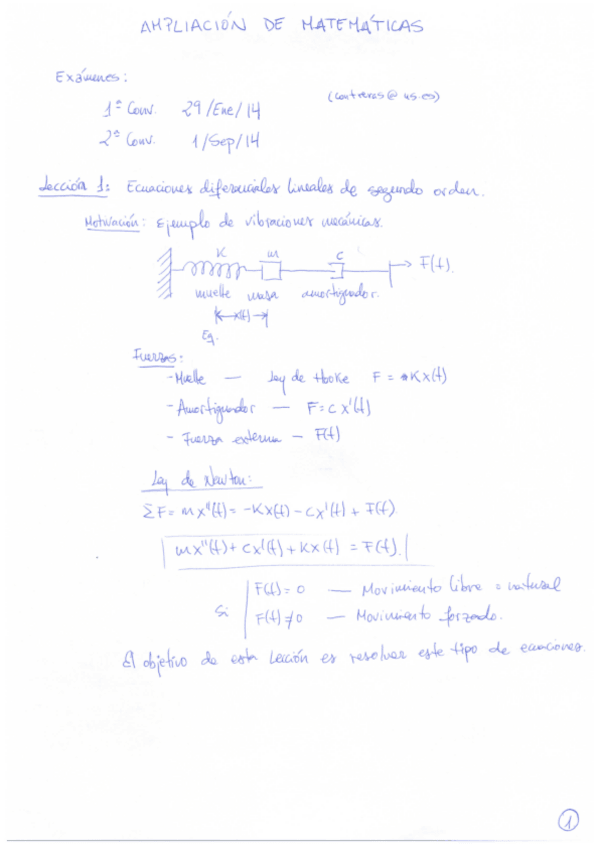 AMPLIACIÓN DE MATEMÁTICAS
Exámenes:
(contreras@us.es)
1ª Conv. 29/Ene/14
2ª Conv. 1/Sep/14
Lección 1: Ecuaciones diferenciales lineales de segundo orden.
Motivación: Ejemplo de vibraciones mecánicas.
K m C
F(t).
muelle masa amortiguador.
x(t)
Eq.
Fuerzas:
- Muelle — Ley de Hooke F = Kx(t)
- Amortiguador — F = c x'(t)
- Fuerza externa — F(t)
Ley de Newton:
ΣF = mx''(t) = -Kx(t) - cx'(t) + F(t)
mx''(t) + cx'(t) + Kx(t) = F(t).
Si F(t) = 0 — Movimiento libre o natural
F(t) ≠ 0 — Movimiento forzado.
El objetivo de esta lección es resolver este tipo de ecuaciones.
1